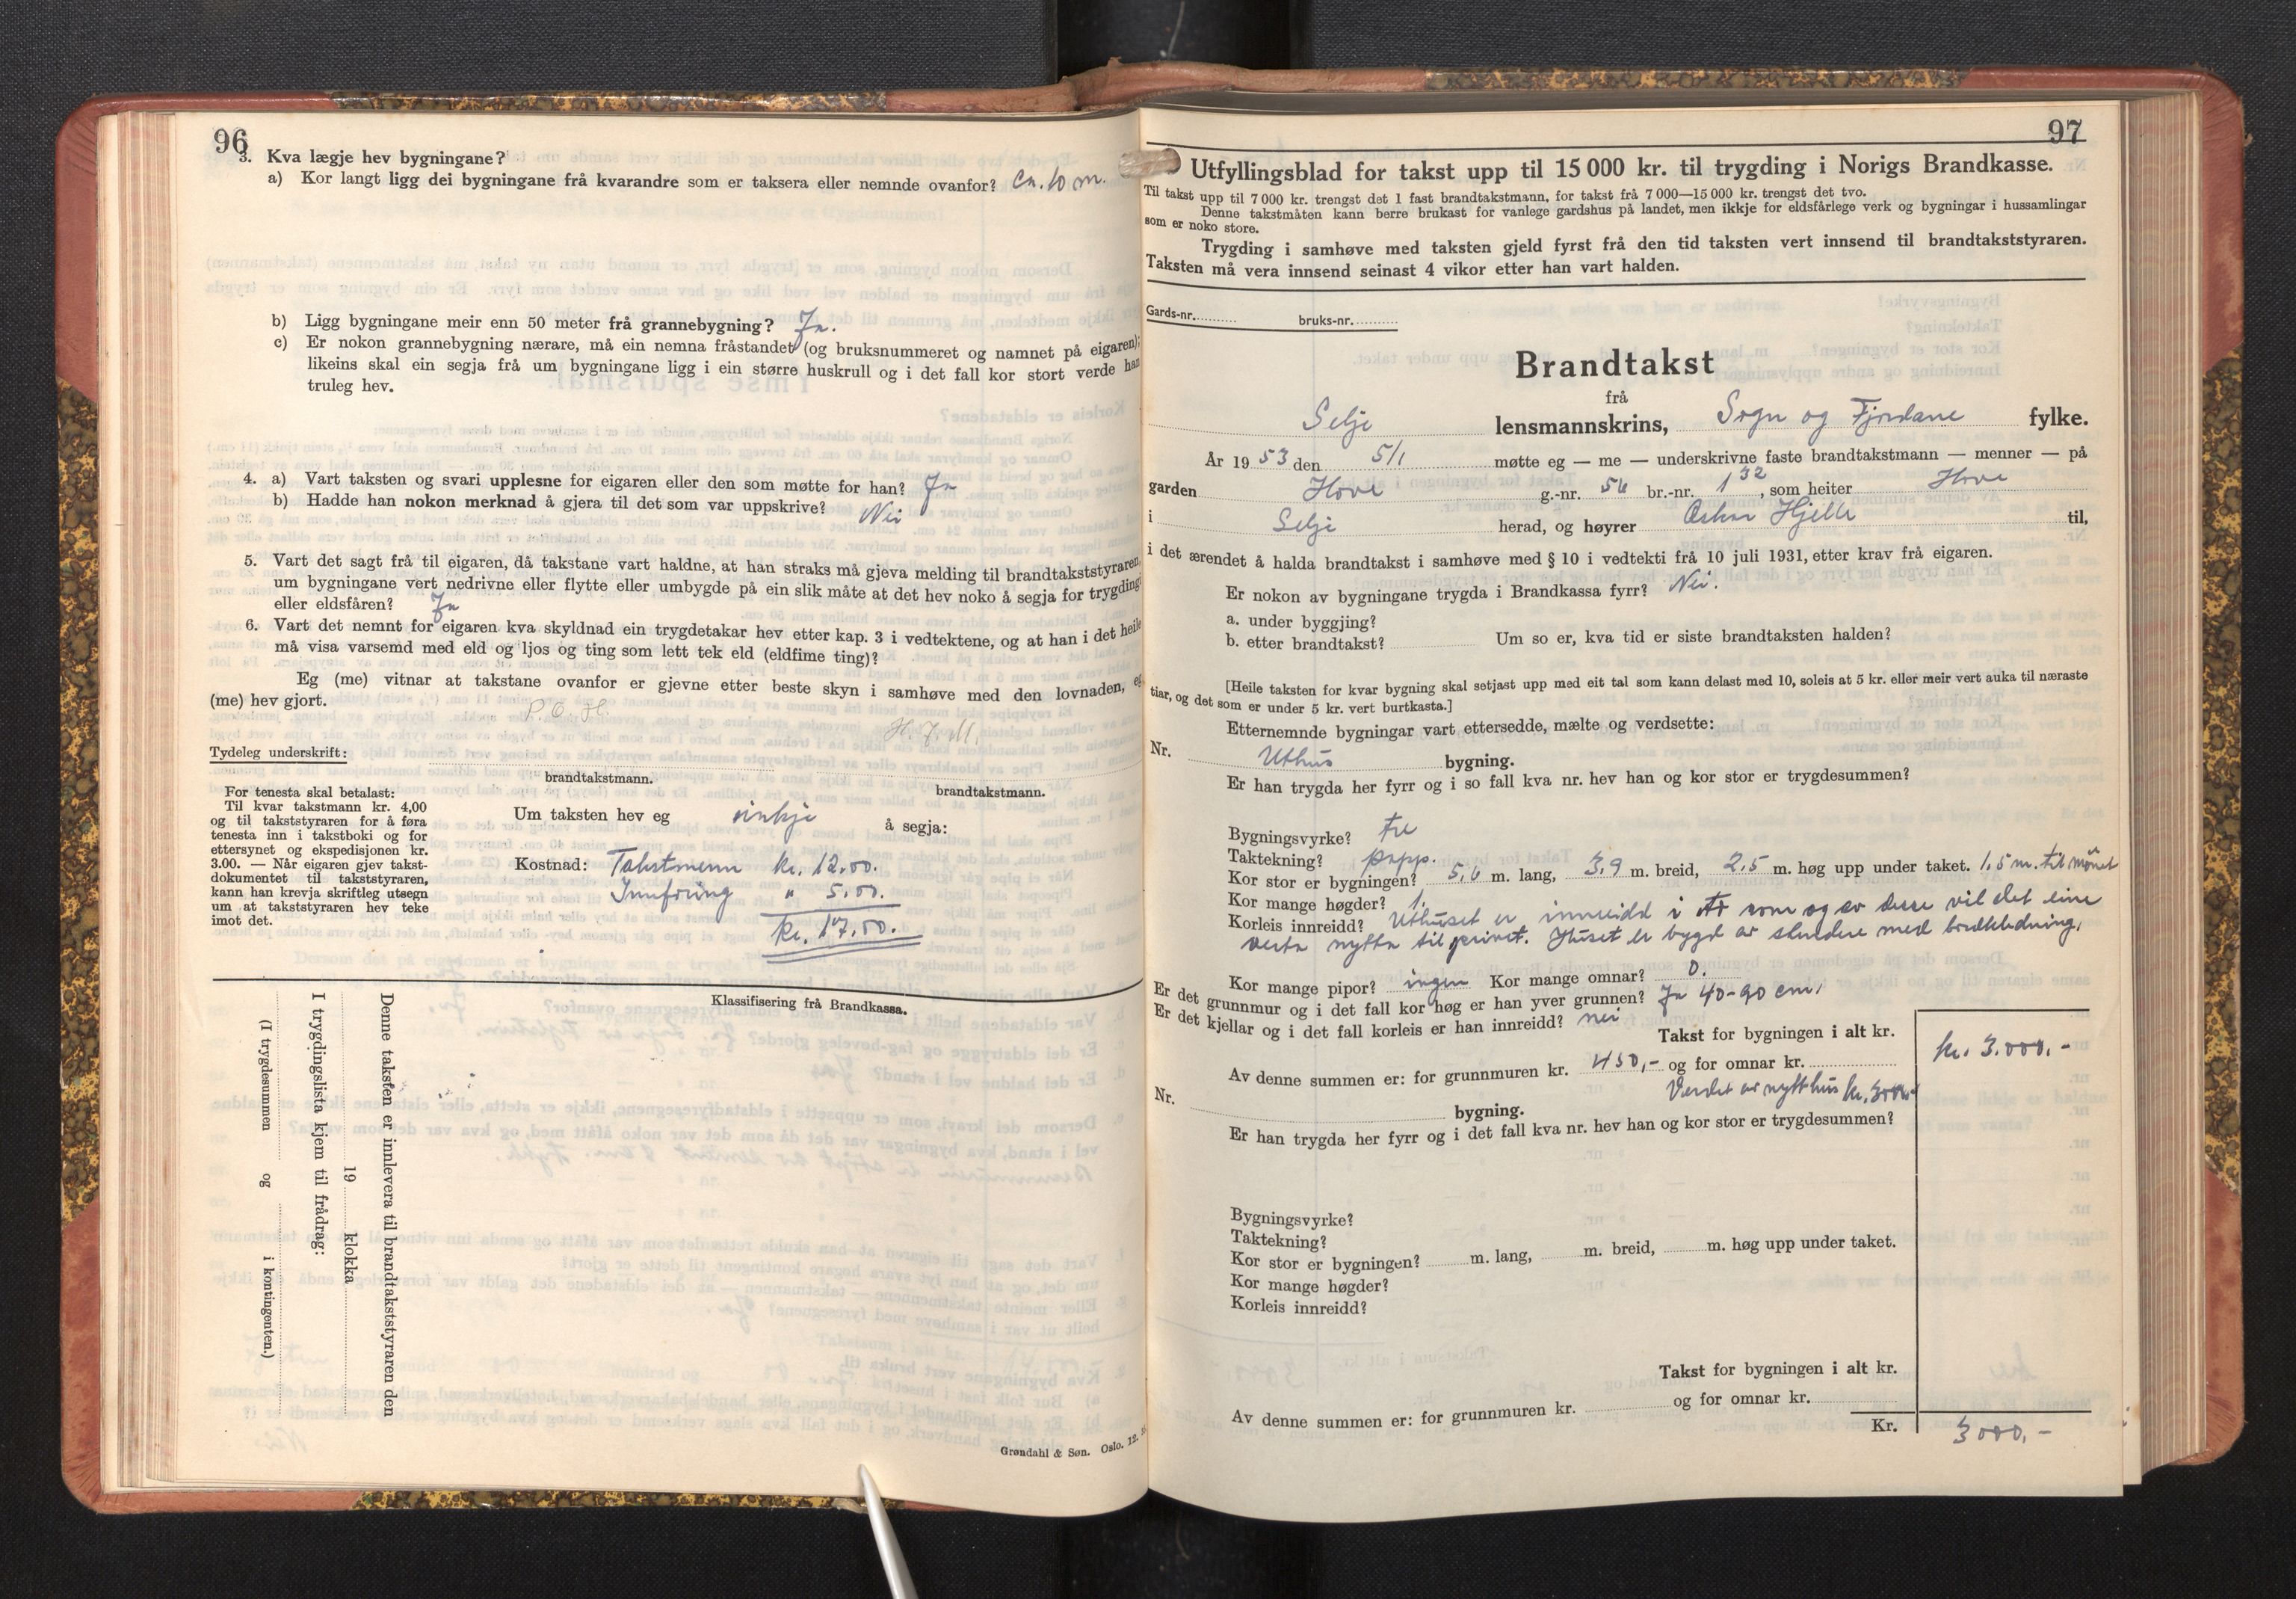 96
3. Kva lægje hev bygningane?
a) Kor langt ligg dei bygningane frå kvarandre som er taksera eller nemnde ovanfor? Ca. 10 m.
b) Ligg bygningane meir enn 50 meter frå grannebygning? Ja.
c) Er nokon grannebygning nærare, må ein nemna fråstandet (og bruksnummeret og namnet på eigaren);
likeins skal ein segja frå um bygningane ligg i ein større huskrull og i det fall kor stort verde han
truleg hev.
4. a) Vart taksten og svari upplesne for eigaren eller den som møtte for han? Ja
b) Hadde han nokon merknad å gjera til det som var uppskrive? Nei
5. Vart det sagt frå til eigaren, då takstane vart haldne, at han straks må gjeva melding til brandtakststyraren,
um bygningane vert nedrivne eller flytte eller umbygde på ein slik måte at det hev noko å segja for trygding
eller eldsfåren? Ja
6. Vart det nemnt for eigaren kva skyldnad ein trygdetakar hev etter kap. 3 i vedtektene, og at han i det heile
må visa varsemd med eld og ljos og ting som lett tek eld (eldfime ting)?
Eg (me) vitnar at takstane ovanfor er gjevne etter beste skyn i samhøve med den lovnaden, eg
(me) hev gjort.
P. O. H.
H. J. M.
Tydeleg underskrift:
brandtakstmann.
brandtakstmann.
For tenesta skal betalast:
Til kvar takstmann kr. 4,00
og til takststyraren for å føra
tenesta inn i takstboki og for
ettersynet og ekspedisjonen kr.
3.00. — Når eigaren gjev takst-
dokumentet til takststyraren,
kann han krevja skriftleg utsegn
um at takststyraren hev teke
imot det.
Um taksten hev eg einkje å segja:
Kostnad: Takstmenn kr. 12.00.
Innføring " 5.00.
kr. 17.00.
Klassifisering frå Brandkassa.
Denne taksten er innlevera til brandtakststyraren den
19 klokka
I trygdingslista kjem til frådrag:
(I trygdesummen og i kontingenten.)
Grøndahl & Søn. Oslo. 12.
97
Utfyllingsblad for takst upp til 15 000 kr. til trygding i Norigs Brandkasse.
Til takst upp til 7 000 kr. trengst det 1 fast brandtakstmann, for takst frå 7 000—15 000 kr. trengst det tvo.
Denne takstmåten kann berre brukast for vanlege gardshus på landet, men ikkje for eldsfårlege verk og bygningar i hussamlingar
som er noko store.
Trygding i samhøve med taksten gjeld fyrst frå den tid taksten vert innsend til brandtakststyraren.
Taksten må vera innsend seinast 4 vikor etter han vart halden.
Gards-nr. bruks-nr.
Brandtakst
frå
Selje lensmannskrins, Sogn og Fjordane fylke.
År 1953 den 5/1 møtte eg — me — underskrivne faste brandtakstmann — menner — på
garden Hove g.-nr. 56 br.-nr. 132, som heiter Hove
i Selje herad, og høyrer Oskar Hjelle til,
i det ærendet å halda brandtakst i samhøve med § 10 i vedtekti frå 10 juli 1931, etter krav frå eigaren.
Er nokon av bygningane trygda i Brandkassa fyrr? Nei.
a. under byggjing?
b. etter brandtakst? Um so er, kva tid er siste brandtaksten halden?
[Heile taksten for kvar bygning skal setjast upp med eit tal som kann delast med 10, soleis at 5 kr. eller meir vert auka til næraste
tiar, og det som er under 5 kr. vert burtkasta.]
Etternemnde bygningar vart ettersedde, mælte og verdsette:
Nr. Uthus bygning.
Er han trygda her fyrr og i so fall kva nr. hev han og kor stor er trygdesummen?
Bygningsvyrke? tre
Taktekning? papp.
Kor stor er bygningen? 5,6 m. lang, 3,9 m. breid, 2,5 m. høg upp under taket. 1,5 m. til mønet
Kor mange høgder? 1.
Korleis innreidd? Uthuset er innreidd i to rom og av desse vil det eine
verta nytta til privet. Huset er bygd av stendere med bordkledning.
Kor mange pipor? ingen Kor mange omnar? 0.
Er det grunnmur og i det fall kor høg er han yver grunnen? Ja 40-90 cm.
Er det kjellar og i det fall korleis er han innreidd? nei
Takst for bygningen i alt kr. kr. 3.000.-
Av denne summen er: for grunnmuren kr. 450,- og for omnar kr.
Verdet av nytt hus kr. 3000.-
Nr. bygning.
Er han trygda her fyrr og i det fall kva nr. hev han og kor stor er trygdesummen?
Bygningsvyrke?
Taktekning?
Kor stor er bygningen? m. lang, m. breid, m. høg upp under taket.
Kor mange høgder?
Korleis innreidd?
Takst for bygningen i alt kr.
Av denne summen er: for grunnmuren kr. og for omnar kr.
Kr. 3000,-